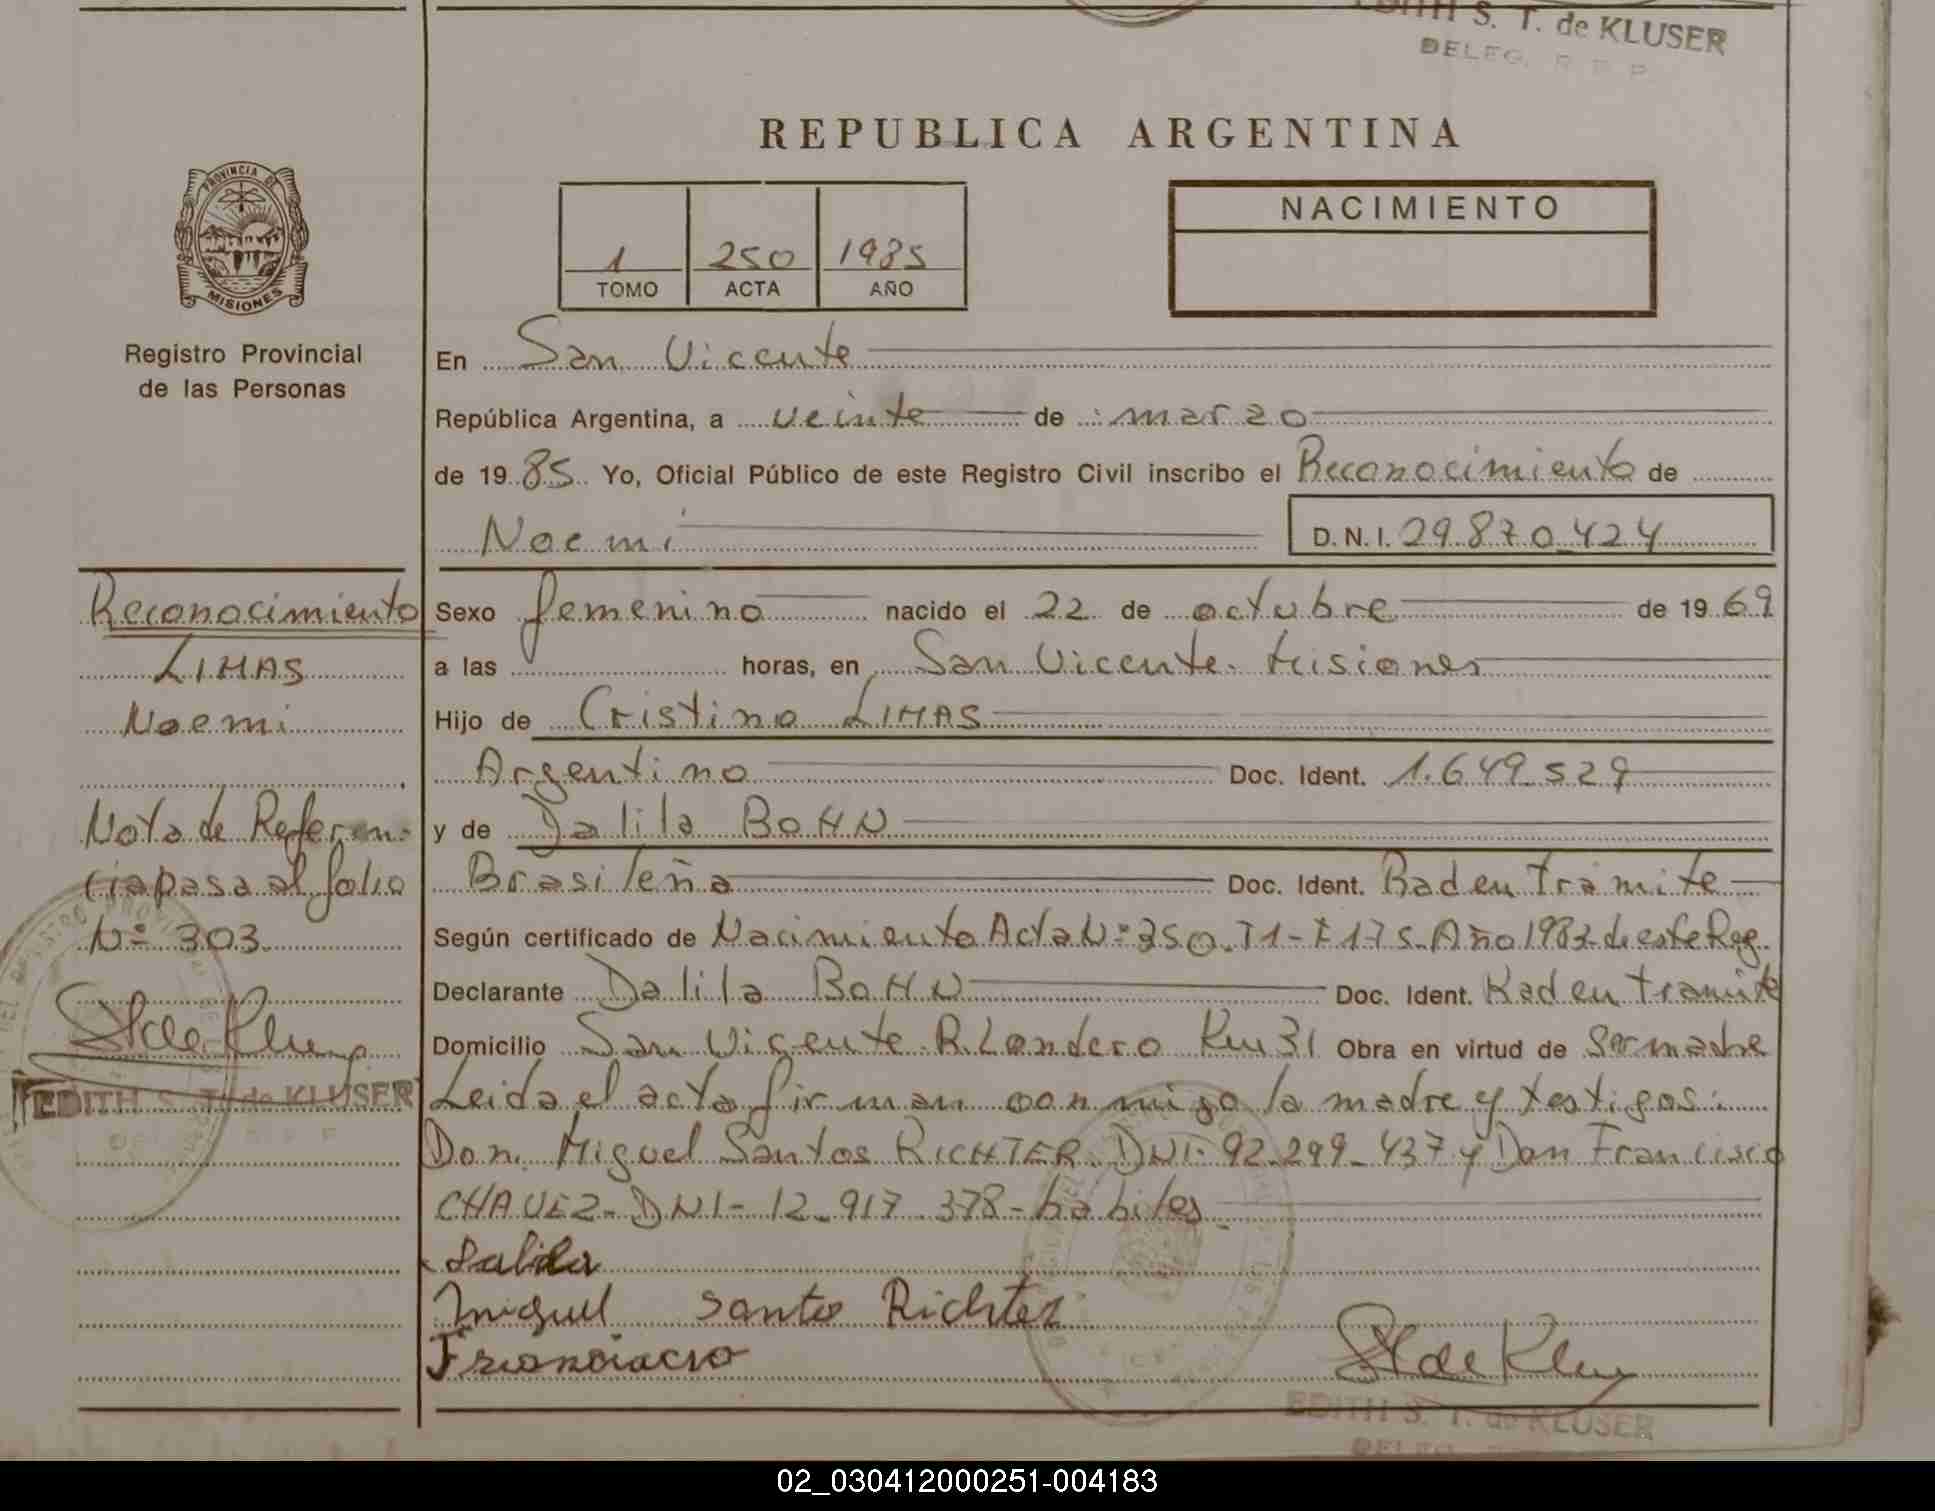 EDITH S. T. de KLUSER
DELEG. R P P
REPUBLICA ARGENTINA
PROVINCIA DE
MISIONES
Registro Provincial
de las Personas
1 250 1985
TOMO ACTA AÑO
NACIMIENTO
En San Vicente
República Argentina, a veinte de marzo
de 1985 Yo, Oficial Público de este Registro Civil inscribo el Reconocimiento de
Noemi D.N.I. 29.870.424
Reconocimiento
LIMAS
Noemi
Nota de Referen-
cia pasa al folio
Nº 303
EDITH S. T. de KLUSER
Sexo femenino nacido el 22 de octubre de 1969
a las horas, en San Vicente. Misiones
Hijo de Cristino LIMAS
Argentino Doc. Ident. 1.649.529
y de Dalila BOHN
Brasileña Doc. Ident. Rad en Tramite
Según certificado de Nacimiento Acta Nº 350. T1- F 175. Año 1983 de este Reg.
Declarante Dalila BOHN Doc. Ident. Rad en Tramite
Domicilio San Vicente R. Landero Km 31 Obra en virtud de Ser madre
Leida el acta firman conmigo la madre y testigos:
Don. Miguel Santos RICHTER. DNI- 92.299.437 y Don Francisco
CHAVEZ- DNI- 12.917.378- habiles
Dalila
Miguel Santo Richter
EDITH S. T. de KLUSER
DELEG.
02_030412000251-004183